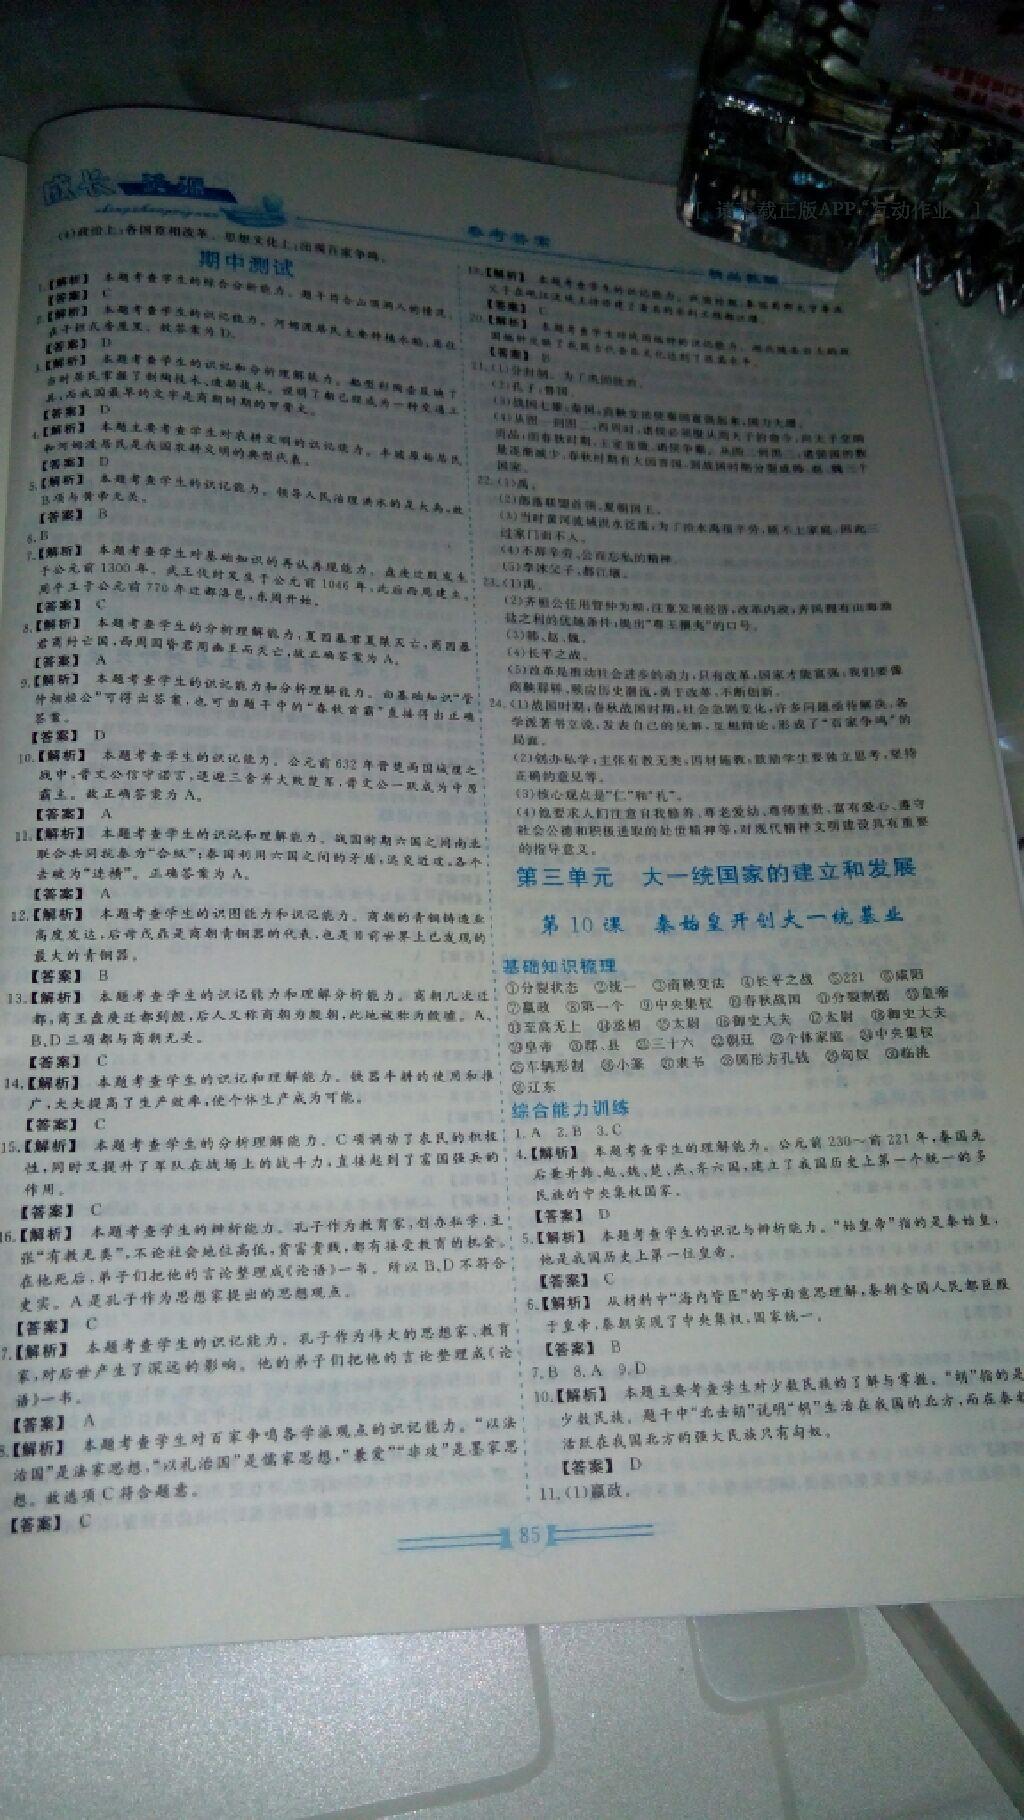 成长
参考答案
[ 请下载正版APP“互动作业” ]
(4)政治上:各国竞相改革。思想文化上:出现百家争鸣。
期中测试
1.【解析】 本题考查学生的综合分析能力。题干符合山顶洞人的情况。
【答案】 C
2.【解析】 本题考查学生的识记能力。河姆渡居民主要种植水稻,居住
在干栏式房屋里。故答案为D。
【答案】 D
3.【解析】 本题考查学生的识记和分析理解能力。船型彩陶壶反映了
当时居民掌握了制陶技术、造船技术。说明了船已经成为一种交通工
具,而我国最早的文字是商朝时期的甲骨文。
【答案】 D
4.【解析】 本题主要考查学生对农耕文明的识记能力。半坡原始居民
和河姆渡居民是我国农耕文明的典型代表。
【答案】 D
5.【解析】 本题考查学生的识记能力。领导人民治理洪水的是大禹,故
B项与黄帝无关。
【答案】 B
6.B
7.【解析】 本题考查学生对基础知识的再认再现能力。盘庚迁殷发生
于公元前1300年。武王伐纣发生于公元前1046年,此后西周建立。
周平王于公元前770年迁都洛邑,东周开始。
【答案】 C
8.【解析】 本题考查学生的分析理解能力,夏因暴君夏桀灭亡,商因暴
君商纣亡国,西周因昏君周幽王而灭亡,故正确答案为A。
【答案】 A
9.【解析】 本题考查学生的识记能力和分析理解能力。由基础知识“管
仲相桓公”可得出答案,也可由题干中的“春秋首霸”直接得出正确
答案。
【答案】 D
10.【解析】 本题考查学生的识记能力。公元前632年晋楚两国城濮之
战中,晋文公信守诺言,退避三舍并大败楚军,晋文公一跃成为中原
霸主。故正确答案为A。
【答案】 A
11.【解析】 本题考查学生的识记和理解能力。战国时期六国之间南北
联合共同抗秦为“合纵”;秦国利用六国之间的矛盾,远交近攻,各个
击破为“连横”。正确答案为A。
【答案】 A
12.【解析】 本题考查学生的识图能力和识记能力。商朝的青铜铸造业
高度发达,后母戊鼎是商朝青铜器的代表,也是目前世界上已发现的
最大的青铜器。
【答案】 B
13.【解析】 本题考查学生的识记能力和理解分析能力。商朝几次迁
都,商王盘庚迁都到殷,后人又称商朝为殷朝,此地被称为殷墟。A、
B、D三项都与商朝无关。
【答案】 C
14.【解析】 本题考查学生的识记和理解能力。铁器牛耕的使用和推
广,大大提高了生产效率,使个体生产成为可能。
【答案】 C
15.【解析】 本题考查学生的分析理解能力。C项调动了农民的积极
性,同时又提升了军队在战场上的战斗力,直接起到了富国强兵的
作用。
【答案】 C
16.【解析】 本题考查学生的辨析能力。孔子作为教育家,创办私学,主
张“有教无类”,不论社会地位高低,贫富贵贱,都有接受教育的机会。
在他死后,弟子们把他的言论整理成《论语》一书。所以B、D不符合
史实。A是孔子作为思想家提出的思想观点。
【答案】 C
7.【解析】 本题考查学生的识记能力。孔子作为伟大的思想家、教育
家,对后世产生了深远的影响。他的弟子们把他的言论整理成《论
语》一书。
【答案】 A
8.【解析】 本题考查学生对百家争鸣各学派观点的识记能力。“以法
治国”是法家思想,“以礼治国”是儒家思想,“兼爱”“非攻”是墨家思
想。故选项C符合题意。
【答案】 C
19.【解析】 本题考查学生的识记能力。战国时期,秦国蜀郡太守李冰
父子在岷江流域主持修建了著名的水利工程都江堰。
【答案】 C
20.【解析】
【答案】 B
21.(1)分封制。为了巩固统治。
(2)孔子;鲁国。
(3)战国七雄;秦国;商鞅变法使秦国富强起来,国力大增。
(4)从图一到图二,西周时,诸侯必须服从周天子的命令,向天子交纳
贡品;而春秋时期,王室衰微,诸侯争霸。从图二到图三,诸侯国的数
量逐渐减少,春秋时期有大国晋国,到战国时期分裂成韩、赵、魏三个
国家。
22.(1)禹。
(2)部落联盟首领,夏朝国王。
(3)当时黄河流域洪水泛滥,为了治水禹很辛劳,顾不上家庭,因此三
过家门而不入。
(4)不辞辛劳、公而忘私的精神。
(5)李冰父子,都江堰。
23.(1)禹。
(2)齐桓公任用管仲为相,注重发展经济,改革内政;齐国拥有山海渔
盐之利的优越条件;提出“尊王攘夷”的口号。
(3)韩、赵、魏。
(4)长平之战。
(5)改革是推动社会进步的动力,只有改革,国家才能富强;我们要像
商鞅那样,顺应历史潮流,勇于改革,不断创新。
24.(1)战国时期;春秋战国时期,社会急剧变化,许多问题亟待解决,各
学派著书立说,发表自己的见解,互相辩论,形成了“百家争鸣”的
局面。
(2)创办私学;主张有教无类,因材施教,鼓励学生要独立思考,坚持
正确的意见等。
(3)核心观点是“仁”和“礼”。
(4)他要求人们注意自我修养、尊老爱幼、尊师重贤、富有爱心、遵守
社会公德和积极进取的处世精神等,对现代精神文明建设具有重要
的指导意义。
第三单元 大一统国家的建立和发展
第10课 秦始皇开创大一统基业
基础知识梳理
①分裂状态 ②统一 ③商鞅变法 ④长平之战 ⑤221 ⑥咸阳
⑦嬴政 ⑧第一个 ⑨中央集权 ⑩春秋战国 ⑪分裂割据 ⑫皇帝
⑬至高无上 ⑭丞相 ⑮太尉 ⑯御史大夫 ⑰太尉 ⑱御史大夫
⑲皇帝 ⑳郡、县 ㉑三十六 ㉒朝廷 ㉓个体家庭 ㉔中央集权
㉕车辆形制 ㉖小篆 ㉗隶书 ㉘圆形方孔钱 ㉙匈奴 ㉚临洮
㉛辽东
综合能力训练
1.A 2.B 3.C
4.【解析】 本题考查学生的理解能力。公元前230～前221年,秦国先
后兼并韩、赵、魏、楚、燕、齐六国,建立了我国历史上第一个统一的多
民族的中央集权国家。
【答案】 D
5.【解析】 本题考查学生的识记与辨析能力。“始皇帝”指的是秦始皇,
他是我国历史上第一位皇帝。
【答案】 C
6.【解析】 从材料中“海内皆臣”的字面意思理解,秦朝全国人民都臣服
于皇帝,秦朝实现了中央集权,国家统一。
【答案】 B
7.B 8.A 9.D
10.【解析】 本题主要考查学生对少数民族的了解与掌握。“胡”指的是
少数民族。题干中“北击胡”说明“胡”生活在我国的北方,而在秦朝
活跃在我国北方的强大民族只有匈奴。
【答案】 D
11.(1)嬴政。
85